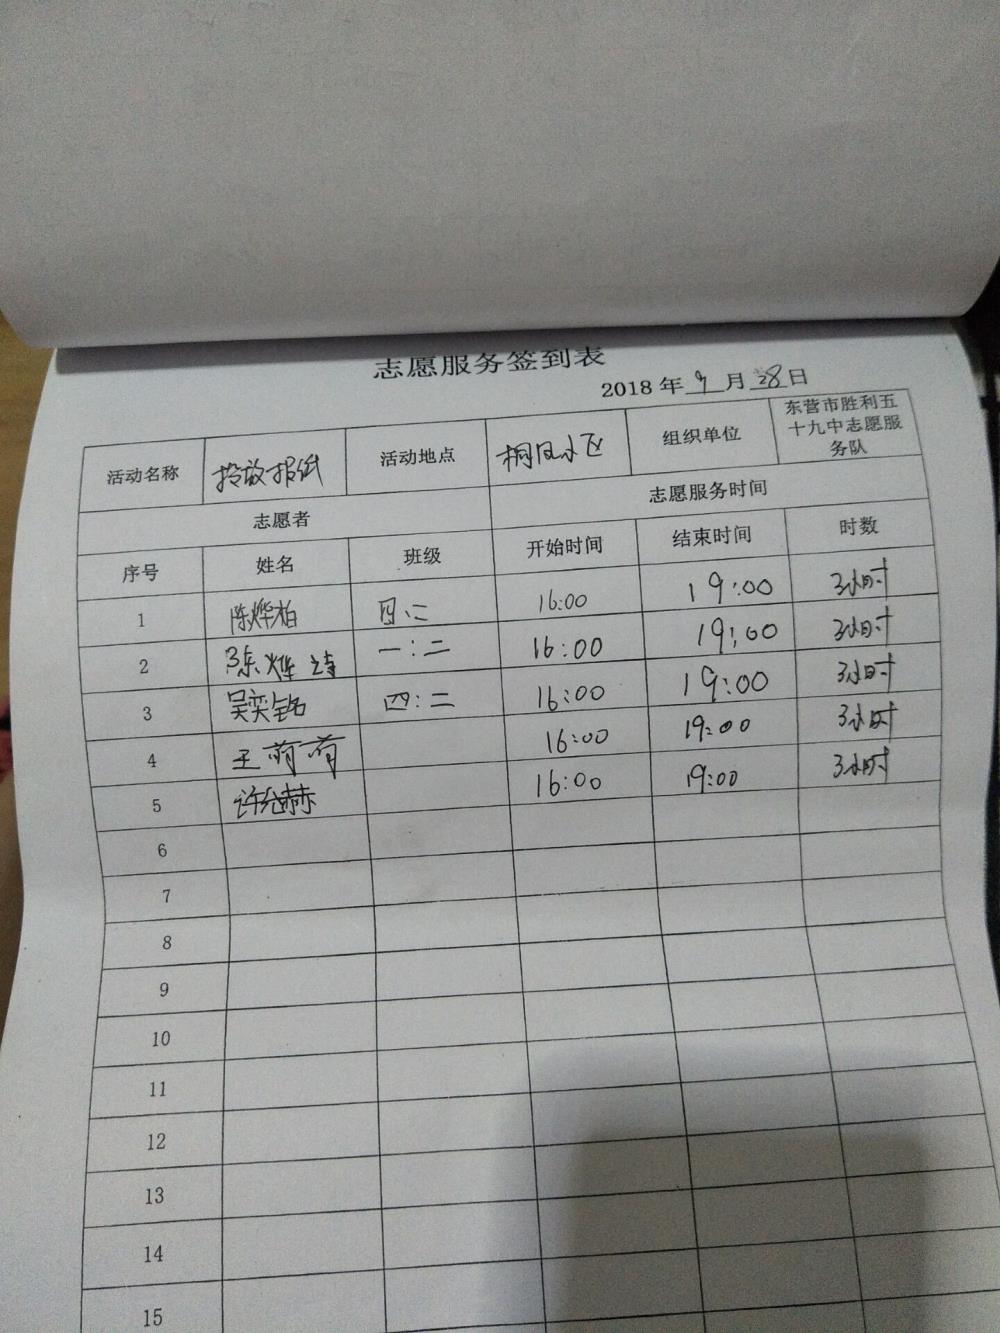 志愿服务签到表
2018 年 9 月 28 日
活动名称 投放报纸 活动地点 桐凤小区 组织单位 东营市胜利五十九中志愿服务队
志愿者 志愿服务时间
序号 姓名 班级 开始时间 结束时间 时数
1 陈烨柏 四:二 16:00 19:00 3小时
2 陈烨 一:二 16:00 19:00 3小时
3 吴奕铭 四:二 16:00 19:00 3小时
4 王萌萌 16:00 19:00 3小时
5 许 赫 16:00 19:00 3小时
6
7
8
9
10
11
12
13
14
15